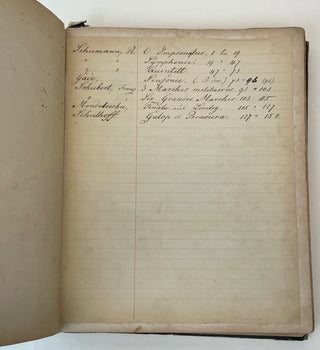 Schumann, R. 6 Impromptus. 1 bis 19.
" " Symphonie. 19 " 47
" " Quintett. 47 " 75
Gade, Sinfonie. (B dur) 75 " 94 (91)
Schubert, Franz 3 Marches militaires. 91 " 103
" " Six Grandes Marches 103 " 115
Mendelssohn, Finale Loreley. 115 " 137
Schulhoff. Galop di Bravura. 137 " 150